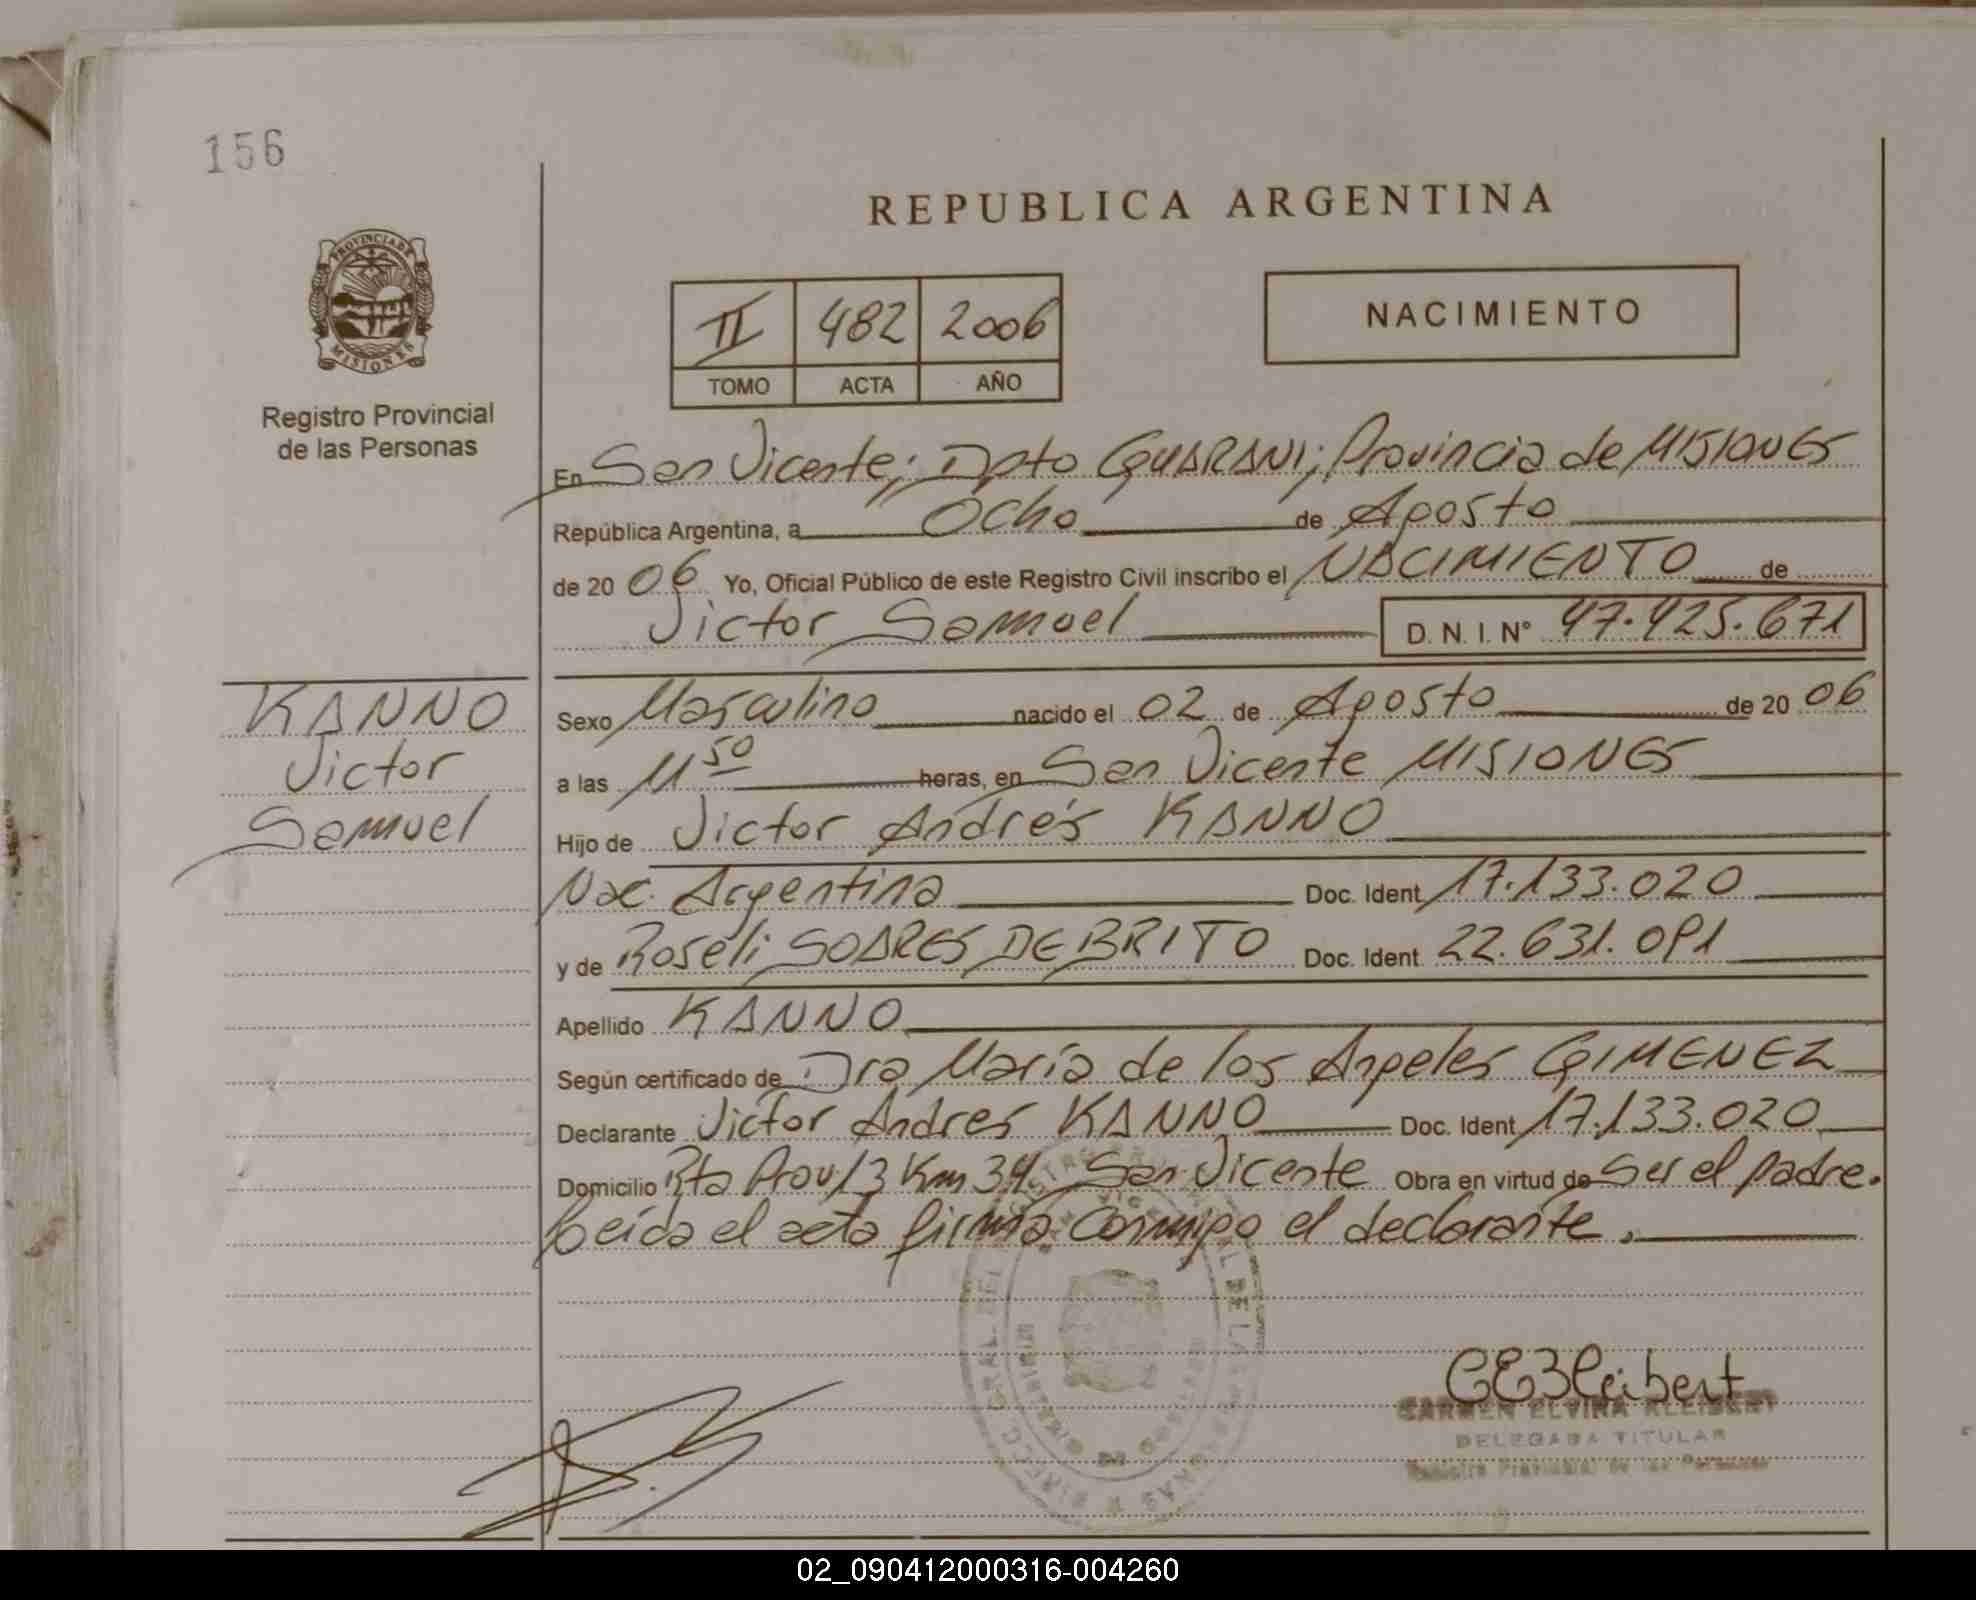 156
REPUBLICA ARGENTINA
PROVINCIA DE
MISIONES
Registro Provincial
de las Personas
II 482 2006
TOMO ACTA AÑO
NACIMIENTO
En San Vicente; Dpto GUARANI; Provincia de MISIONES
República Argentina, a Ocho de Agosto
de 20 06 Yo, Oficial Público de este Registro Civil inscribo el NACIMIENTO de
Victor Samuel D. N. I. Nº 47.425.671
KANNO
Victor
Samuel
Sexo Masculino nacido el 02 de Agosto de 20 06
a las 11 50 horas, en San Vicente MISIONES
Hijo de Victor Andrés KANNO
Nac. Argentina Doc. Ident 17.133.020
y de Roseli SOARES DE BRITO Doc. Ident 22.631.091
Apellido KANNO
Según certificado de Dra María de los Angeles GIMENEZ
Declarante Victor Andres KANNO Doc. Ident 17.133.020
Domicilio Rta Prov 13 Km 34. San Vicente Obra en virtud de Ser el padre.
Leída el acta firma conmigo el declarante.
CEKleibert
CARMEN ELVIRA KLEIBERT
DELEGADA TITULAR
Registro Provincial de las Personas
02_090412000316-004260